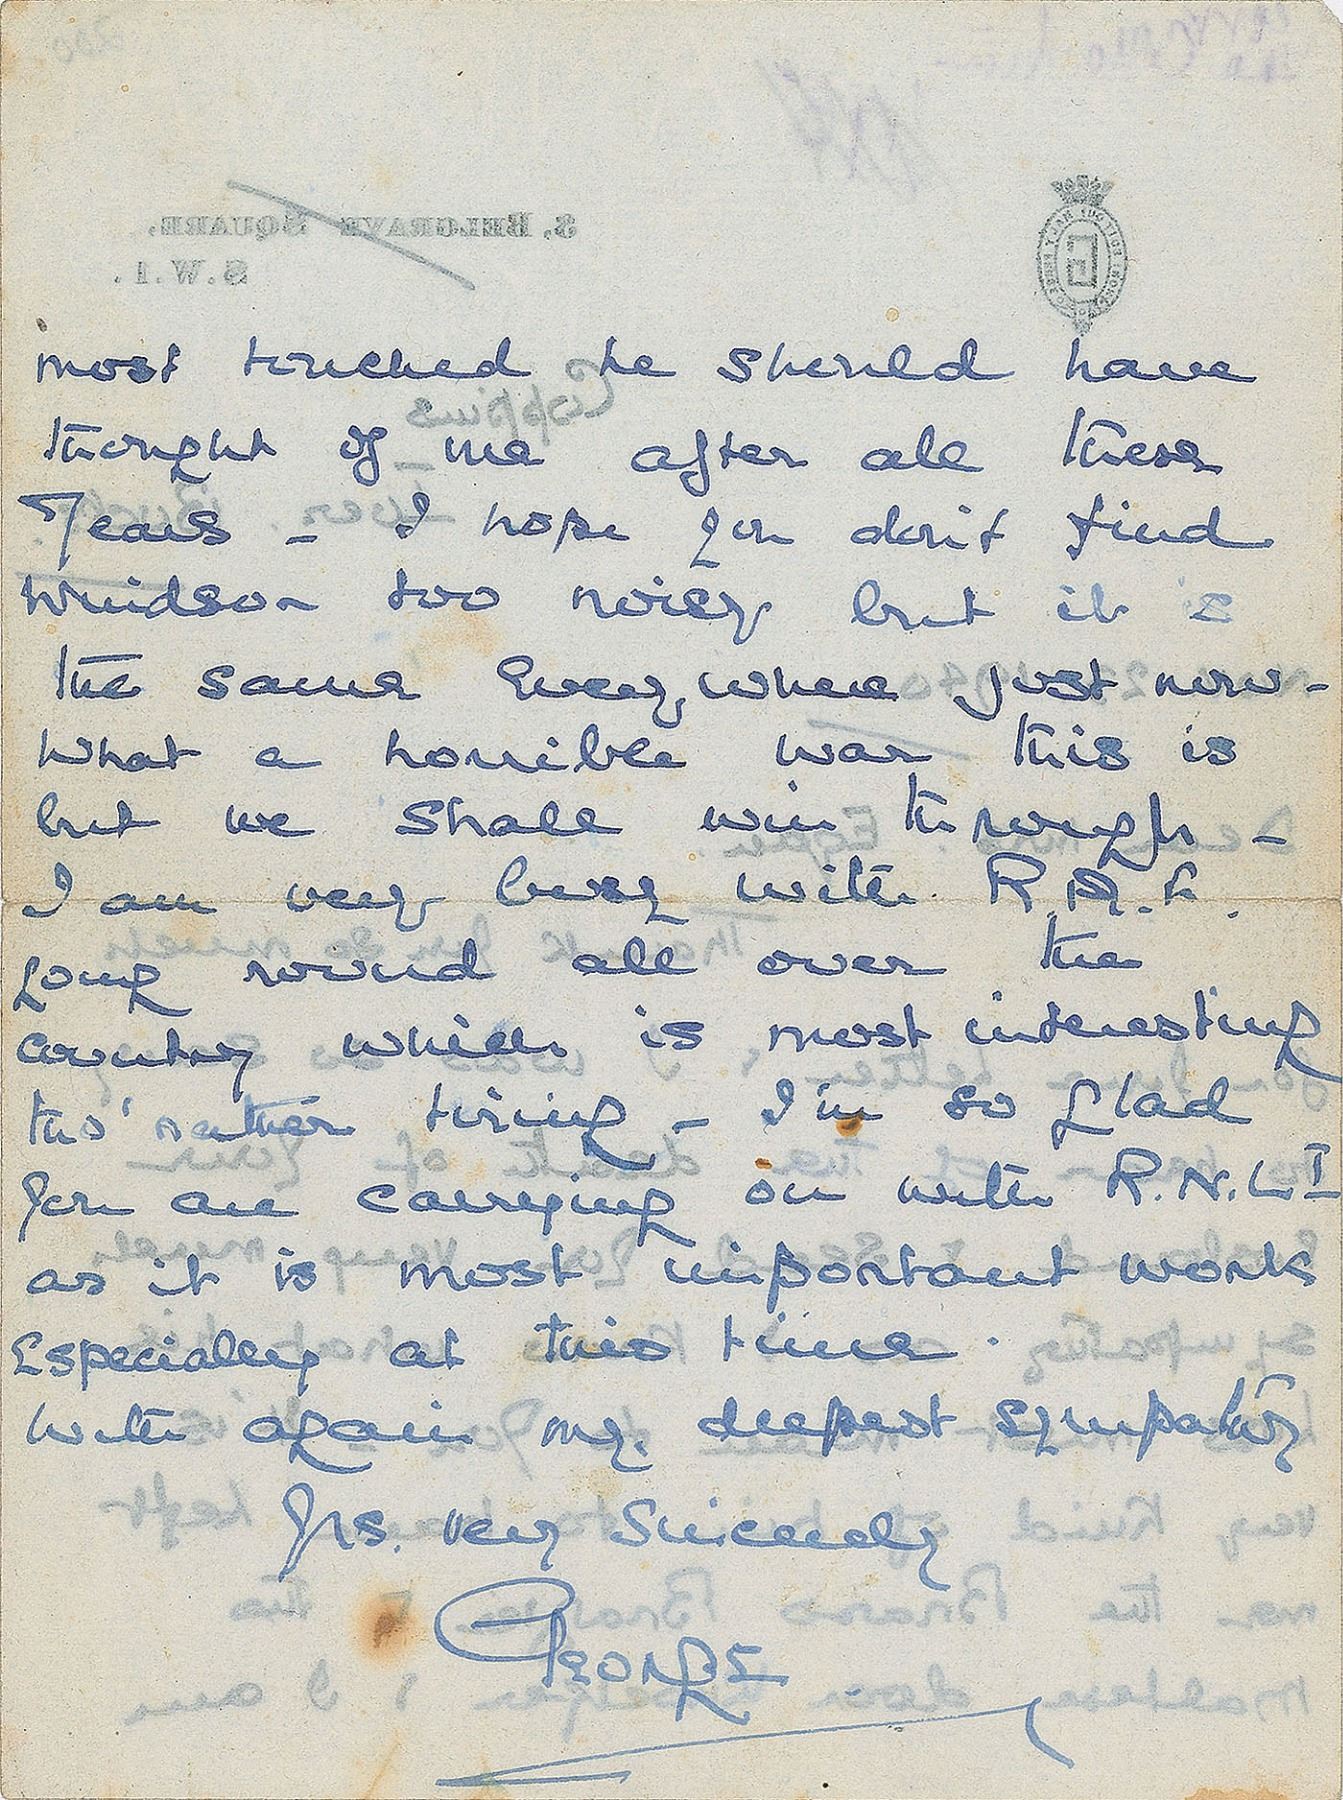 most touched he should have
thought of me after all these
years - I hope you don't find
Windsor too noisy but it is
the same every where just now -
What a horrible war this is
but we shall win through -
I am very busy with R.A.F.
going round all over the
country which is most interesting
tho' rather tiring - I'm so glad
you are carrying on with R.N.L.I
as it is most important work
especially at this time.
With again my deepest sympathy
Yrs. very sincerely
George